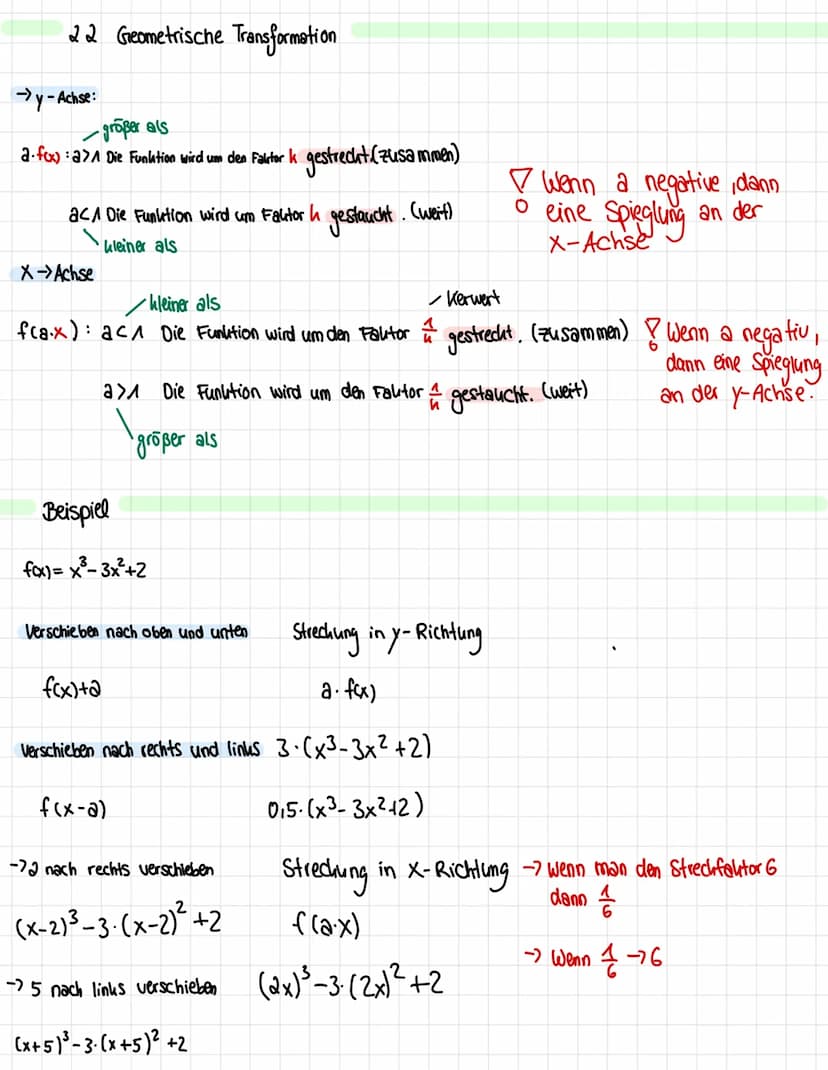 2.2 Geometrische Transformation
→ y-Achse:
größer als
a·f(x) : a>1 Die Funktion wird um den Faktor k gestreckt. (zusammen)
! Wenn a negative, dann
eine Spieglung an der
x-Achse
a<1 Die Funktion wird um Faktor k gestaucht. (weit)
kleiner als
X → Achse
kleiner als
Kerwert
f(a·x) : a<1 Die Funktion wird um den Faktor 1/k gestreckt. (zusammen)
! Wenn a negativ,
dann eine Spieglung
an der y-Achse.
a>1 Die Funktion wird um den Faktor 1/k gestaucht. (weit)
größer als
Beispiel
f(x) = x³ - 3x² + 2
Verschieben nach oben und unten
Streckung in y-Richtung
f(x)+a
a · f(x)
Verschieben nach rechts und links
3·(x³-3x²+2)
f(x-a)
0,5·(x³-3x²+2)
→ 2 nach rechts verschieben
Streckung in x-Richtung
→ Wenn man den Streckfaktor 6
dann 1/6
(x-2)³-3·(x-2)²+2
f(a·x)
→ Wenn 1/6 → 6
→ 5 nach links verschieben
(2x)³-3·(2x)²+2
(x+5)³-3·(x+5)²+2